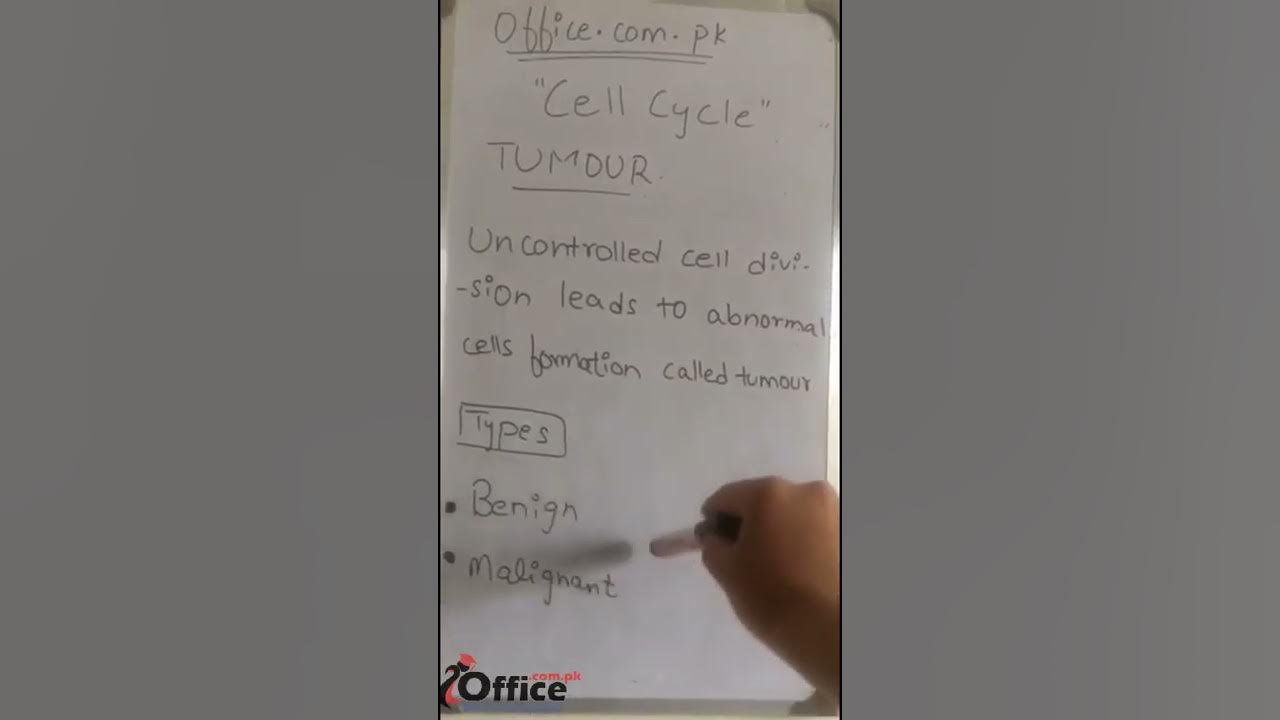 Office.com.pk
"Cell Cycle"
TUMOUR.
Uncontrolled cell divi-
-sion leads to abnormal
cells formation called tumour
Types
• Benign
• Malignant
Office.com.pk